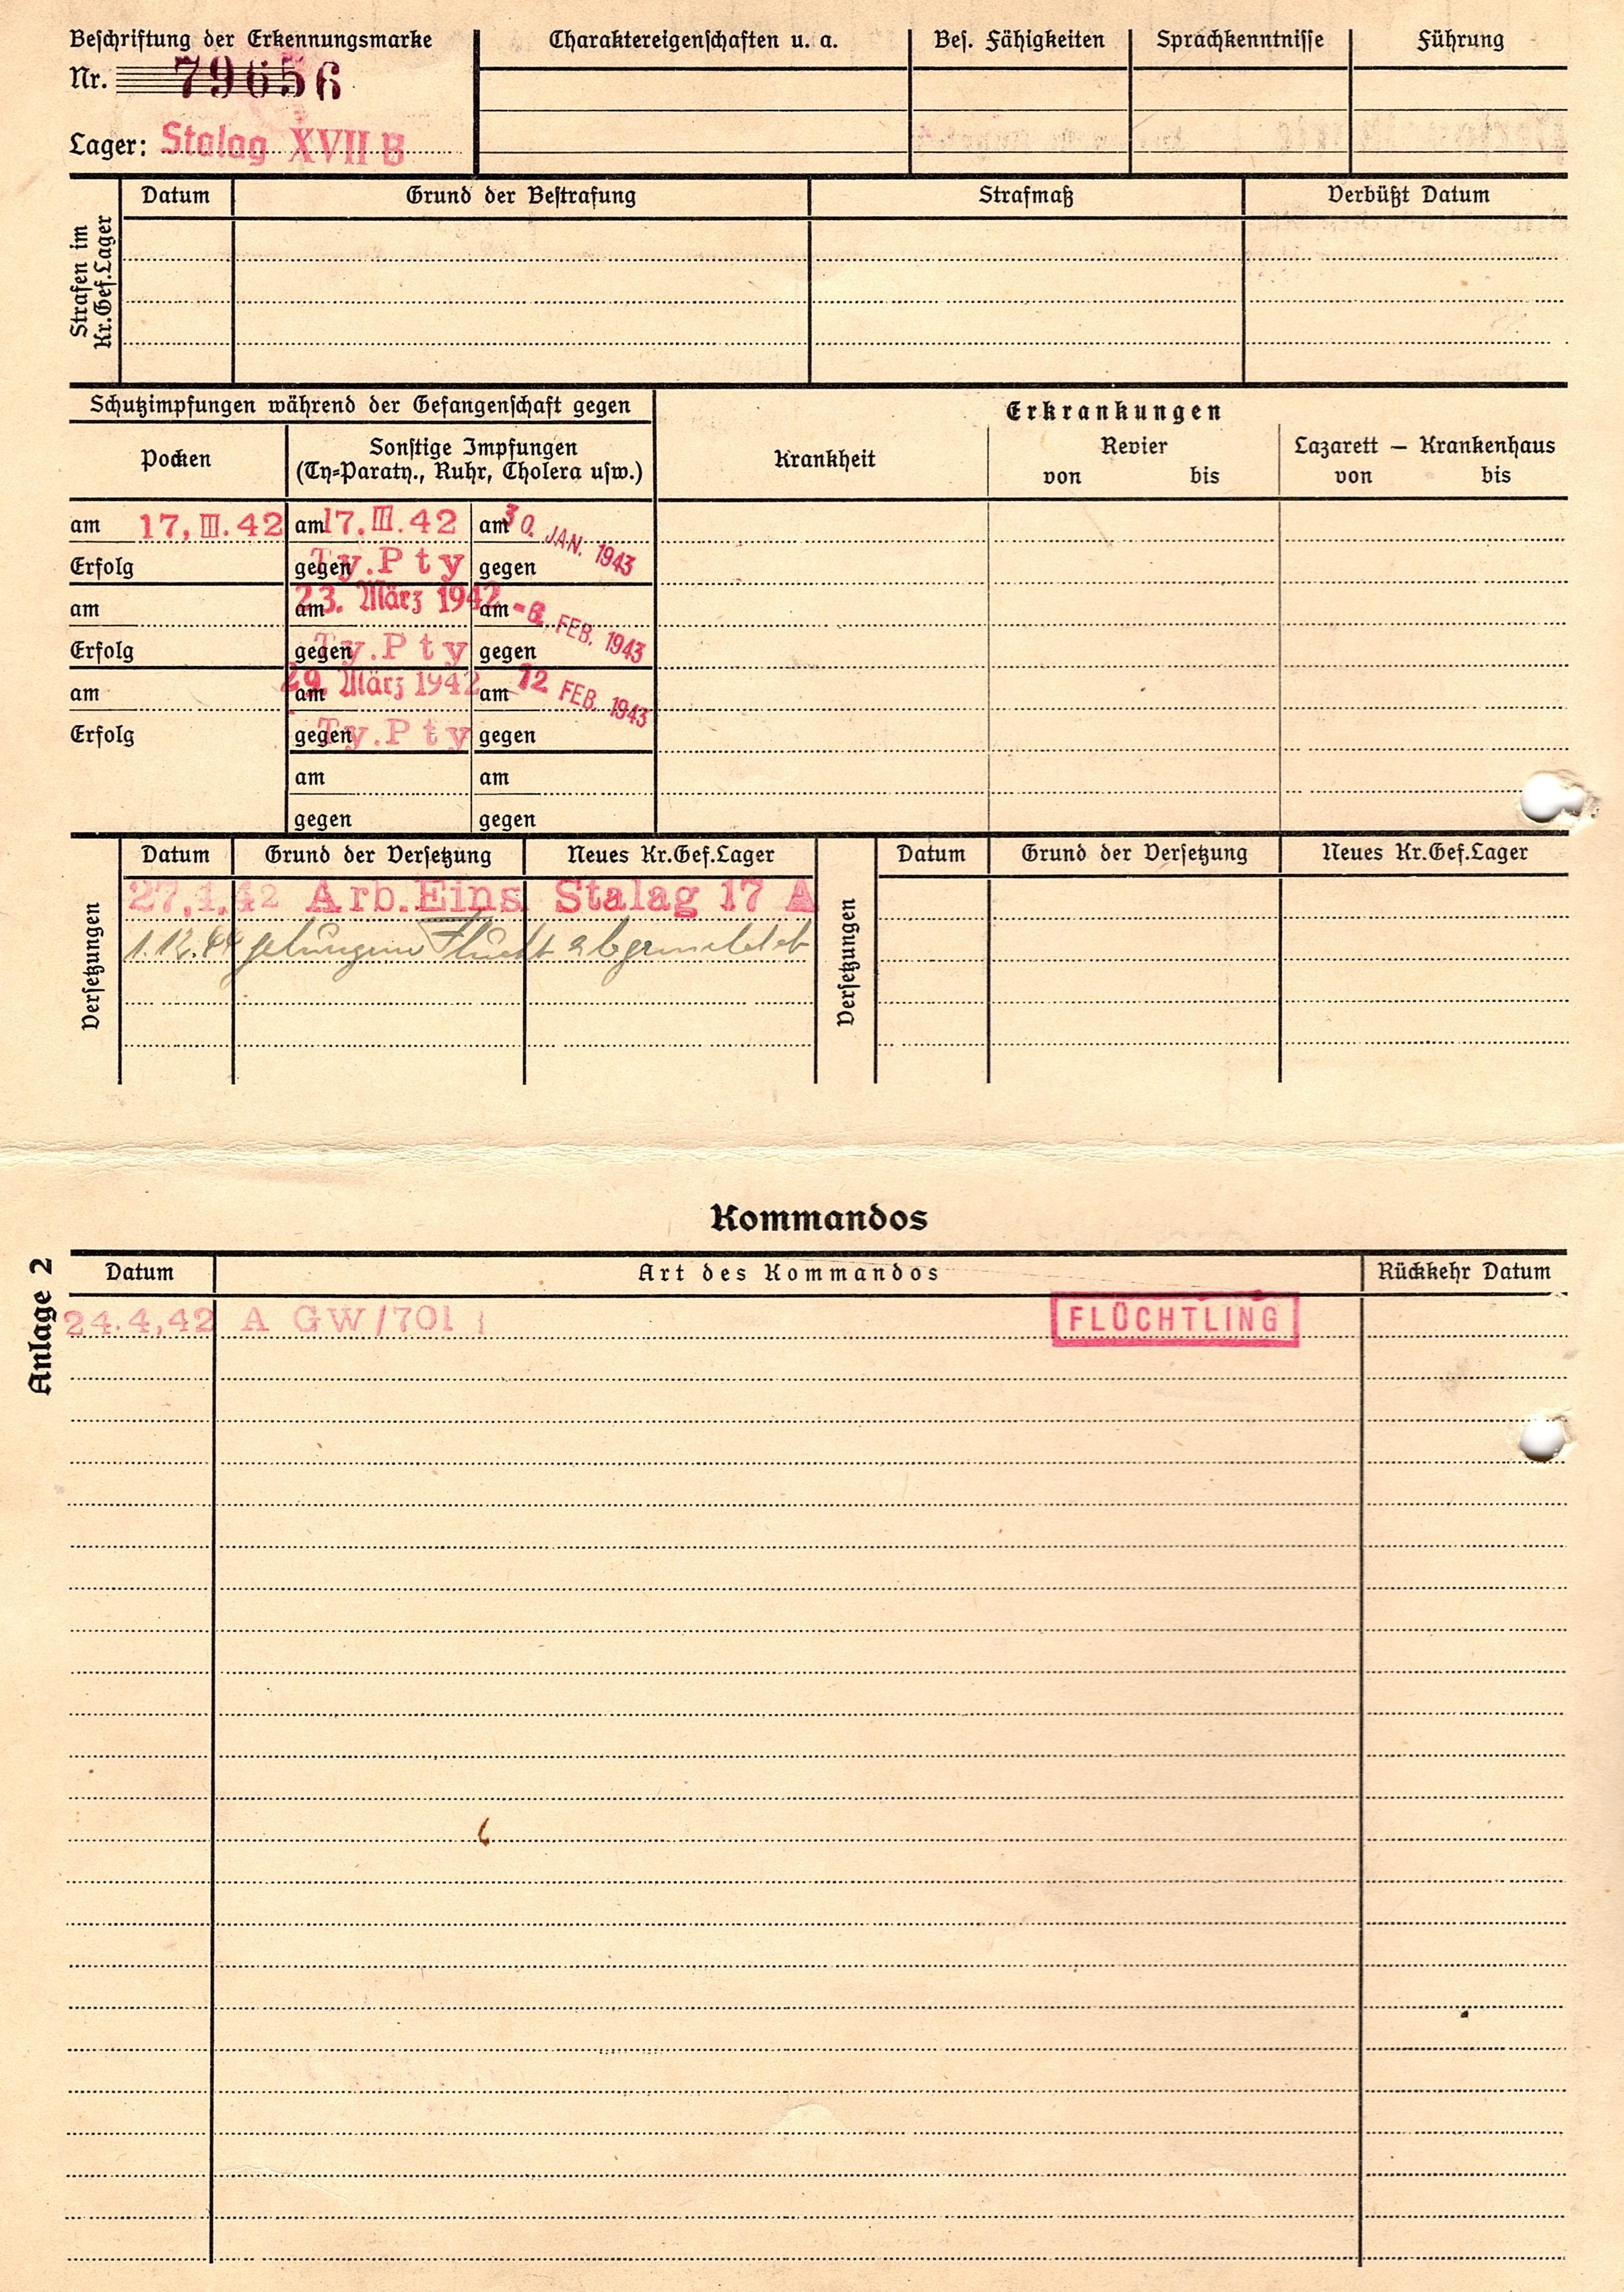 Beschriftung der Erkennungsmarke
Nr. 79656
Lager: Stalag XVII B
Charaktereigenschaften u. a.
Bes. Fähigkeiten
Sprachkenntnisse
Führung
Strafen im Kr.Gef.Lager
Datum
Grund der Bestrafung
Strafmaß
Verbüßt Datum
Schutzimpfungen während der Gefangenschaft gegen
Pocken
Sonstige Impfungen
(Ty=Paraty., Ruhr, Cholera usw.)
am 17. III. 42 am 17. III. 42 am 30. JAN. 1943
Erfolg gegen Ty.Pty gegen
am am 23. März 1942 am -6. FEB. 1943
Erfolg gegen Ty.Pty gegen
am am 29. März 1942 am 12 FEB. 1943
Erfolg gegen Ty.Pty gegen
am am
gegen gegen
Erkrankungen
Krankheit
Revier
von bis
Lazarett — Krankenhaus
von bis
Versetzungen
Datum Grund der Versetzung Neues Kr.Gef.Lager
27.4.42 Arb.Eins Stalag 17 A
1.12.44 gelungene Flucht abgemeldet
Versetzungen
Datum Grund der Versetzung Neues Kr.Gef.Lager
Kommandos
Anlage 2
Datum Art des Kommandos Rückkehr Datum
24.4.42 A GW/701 FLÜCHTLING